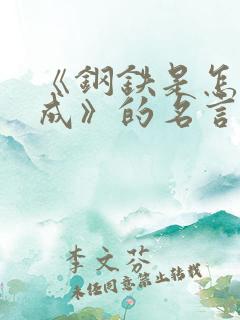 《鋼鉄是怎
成》的名言
李文芬
未经同意禁止转载